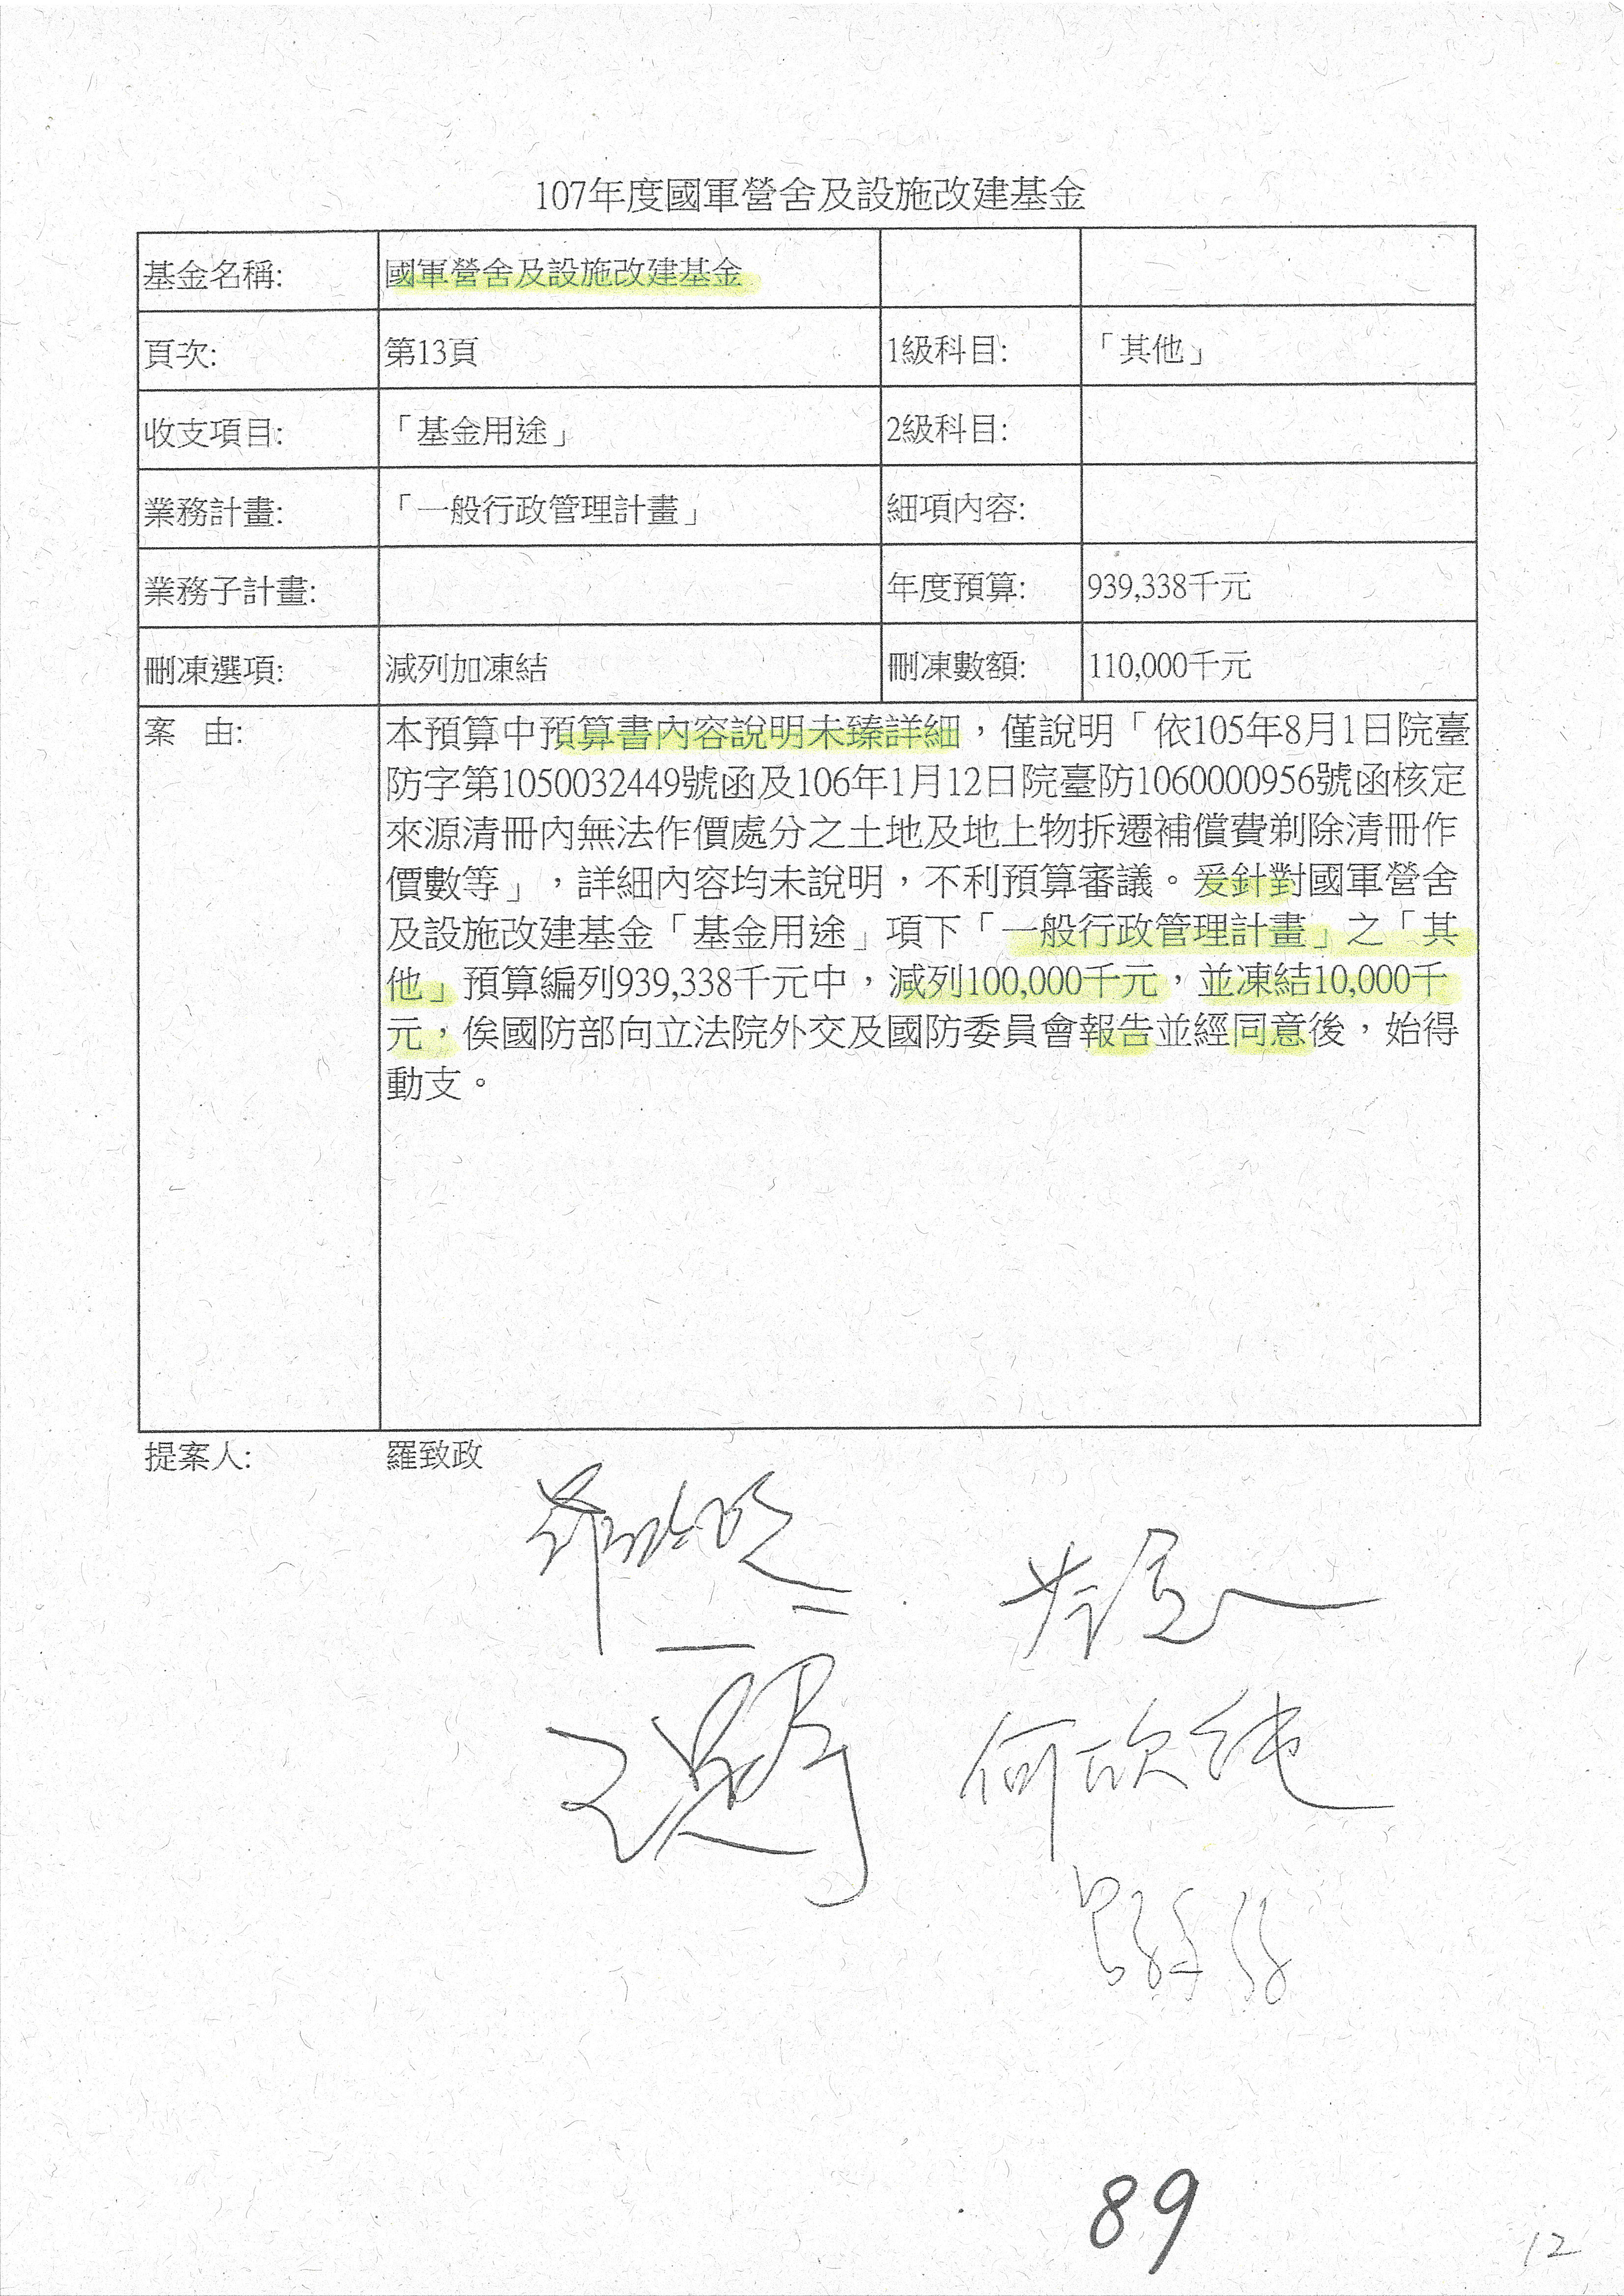 107年度國軍營舍及設施改建基金
基金名稱: 國軍營舍及設施改建基金
頁次: 第13頁 1級科目: 「其他」
收支項目: 「基金用途」 2級科目:
業務計畫: 「一般行政管理計畫」 細項內容:
業務子計畫: 年度預算: 939,338千元
刪凍選項: 減列加凍結 刪凍數額: 110,000千元
案 由: 本預算中預算書內容說明未臻詳細，僅說明「依105年8月1日院臺
防字第1050032449號函及106年1月12日院臺防1060000956號函核定
來源清冊內無法作價處分之土地及地上物拆遷補償費剃除清冊作
價數等」，詳細內容均未說明，不利預算審議。爰針對國軍營舍
及設施改建基金「基金用途」項下「一般行政管理計畫」之「其
他」預算編列939,338千元中，減列100,000千元，並凍結10,000千
元，俟國防部向立法院外交及國防委員會報告並經同意後，始得
動支。
提案人: 羅致政
羅致政
何欣純
89
12